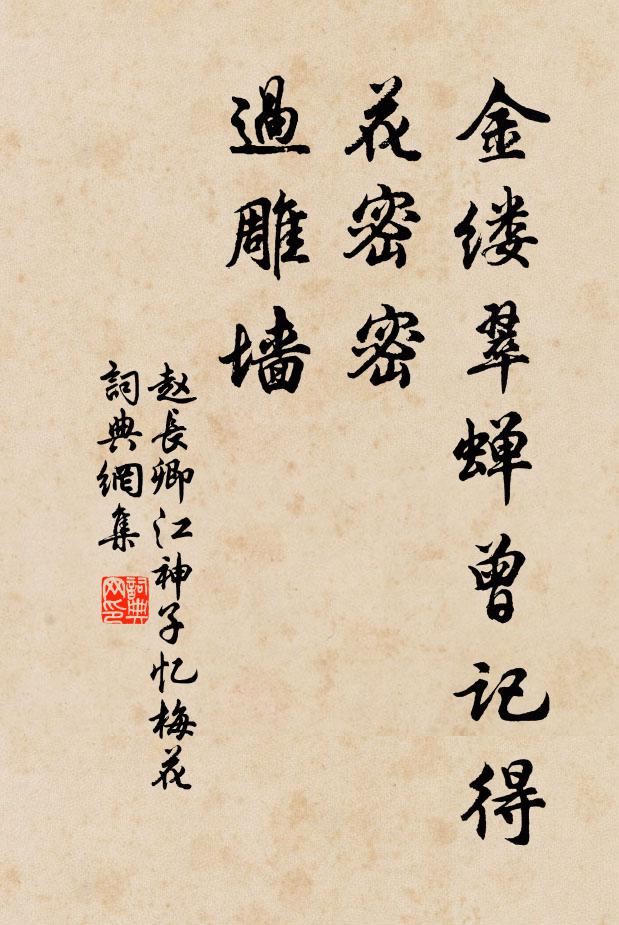 金缕翠蝉曾记得
花密密
過雕墙
赵長卿江神子忆梅花
詞典網集
詞典
网印